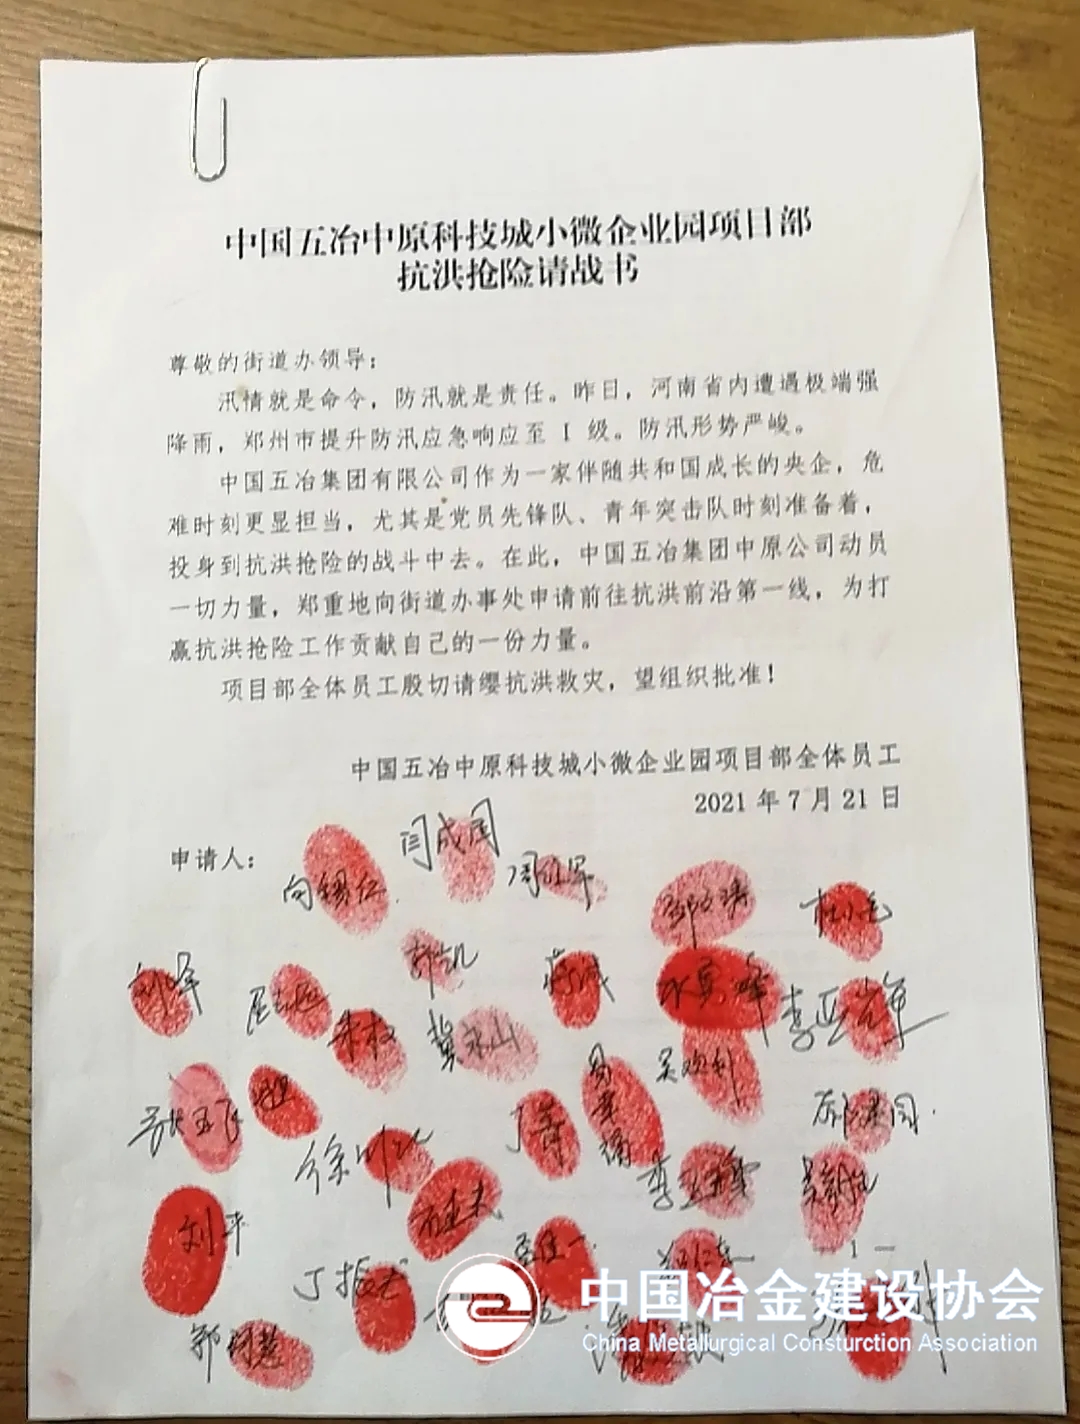 中国五冶中原科技城小微企业园项目部
抗洪抢险请战书
尊敬的街道办领导：
汛情就是命令，防汛就是责任。昨日，河南省内遭遇极端强
降雨，郑州市提升防汛应急响应至 I 级。防汛形势严峻。
中国五冶集团有限公司作为一家伴随共和国成长的央企，危
难时刻更显担当，尤其是党员先锋队、青年突击队时刻准备着，
投身到抗洪抢险的战斗中去。在此，中国五冶集团中原公司动员
一切力量，郑重地向街道办事处申请前往抗洪前沿第一线，为打
赢抗洪抢险工作贡献自己的一份力量。
项目部全体员工殷切请缨抗洪救灾，望组织批准！
中国五冶中原科技城小微企业园项目部全体员工
2021 年 7 月 21 日
申请人：
闫成国
向锡仁
杜小毛
郭凯
蒋诚
冀永山
吴欢利
丁尊
刘平
丁振龙
— 1 —
中国冶金建设协会
China Metallurgical Consturction Association